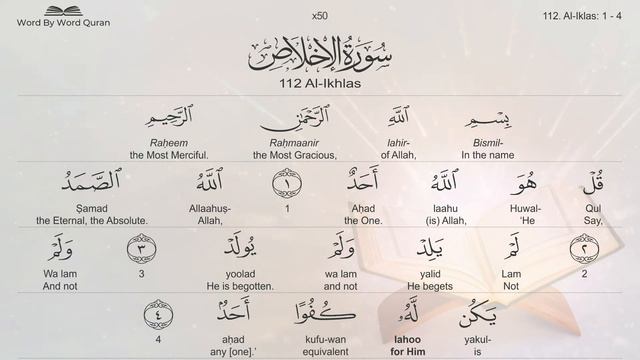 Word By Word Quran
x50
112. Al-Iklas: 1 - 4
سُورَةُ الإِخْلَاصِ
112 Al-Ikhlas
بِسْمِ ٱللَّهِ ٱلرَّحْمَٰنِ ٱلرَّحِيمِ
Raḥeem Raḥmaanir lahir- Bismil-
the Most Merciful. the Most Gracious, of Allah, In the name
قُلْ هُوَ ٱللَّهُ أَحَدٌ ١ ٱللَّهُ ٱلصَّمَدُ
Ṣamad Allaahuṣ- 1 Aḥad laahu Huwal- Qul
the Eternal, the Absolute. Allah, the One. (is) Allah, ‘He Say,
٢ لَمْ يَلِدْ وَلَمْ يُولَدْ ٣ وَلَمْ
Wa lam 3 yoolad wa lam yalid Lam 2
And not He is begotten. and not He begets Not
يَكُن لَّهُۥ كُفُوًا أَحَدٌۢ ٤
4 aḥad kufu-wan lahoo yakul-
any [one].’ equivalent for Him is